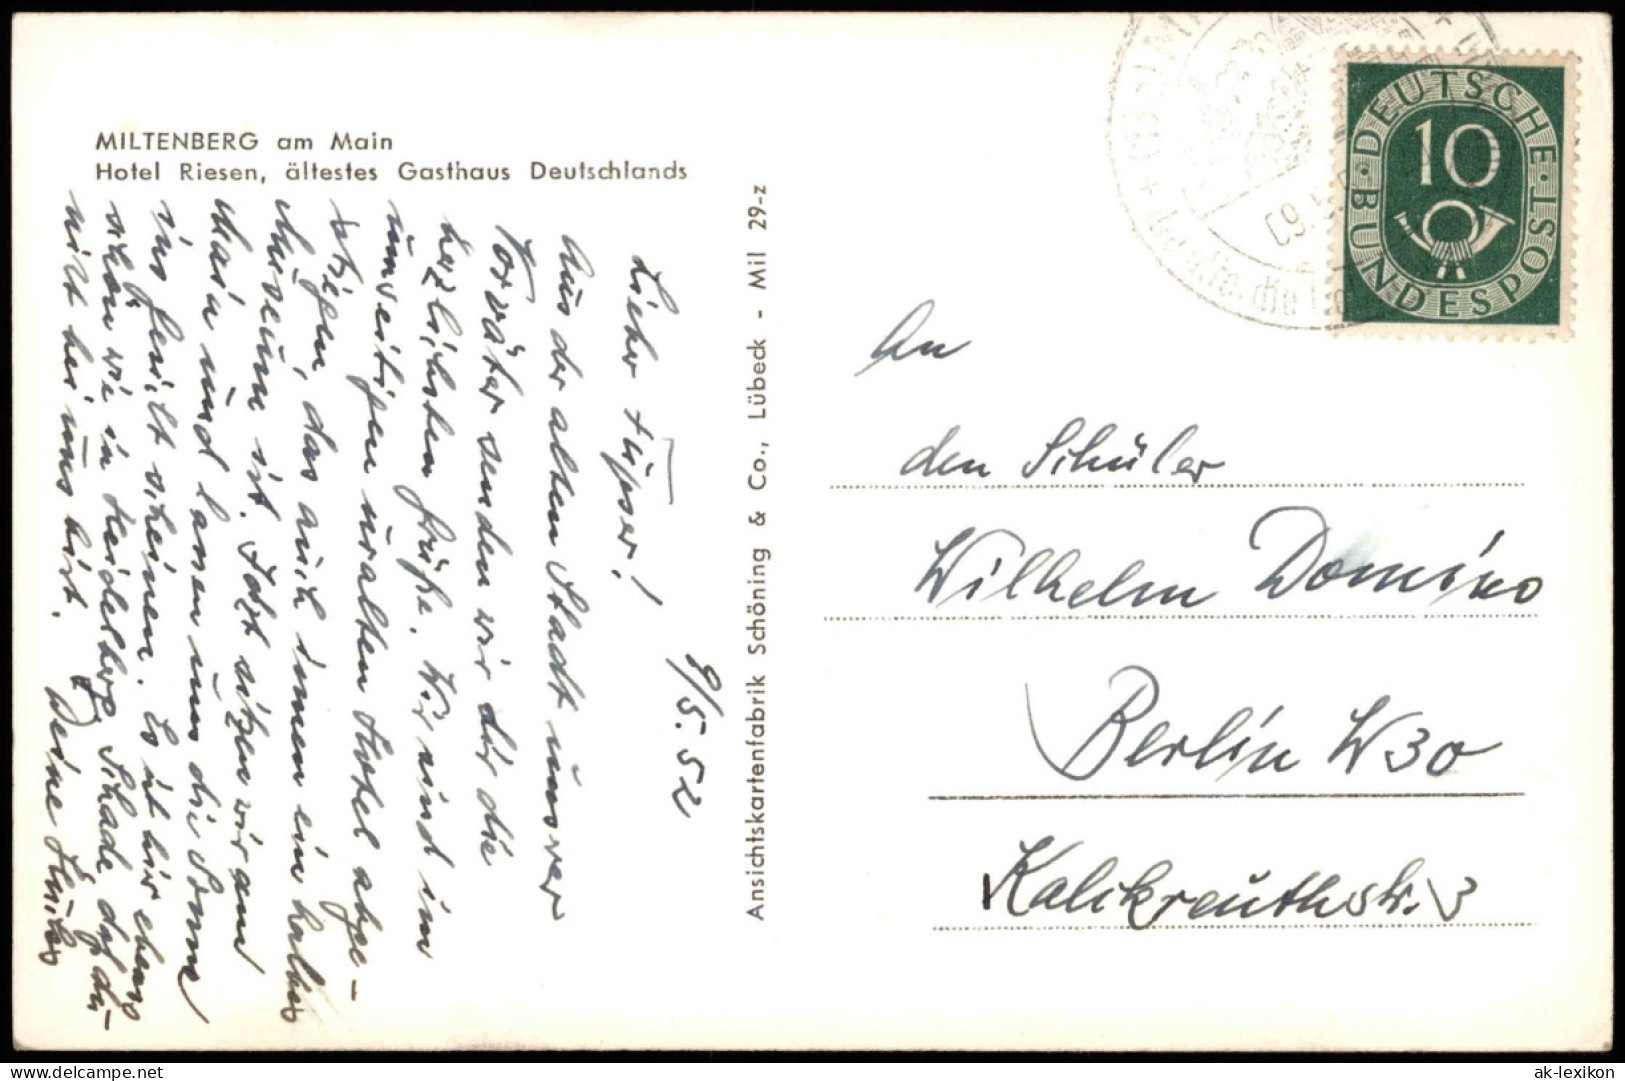 MILTENBERG am Main
Hotel Riesen, ältestes Gasthaus Deutschlands
Lieber Füpser! 9/5.52
Aus der alten Stadt unserer
Vorväter senden wir dir die
herzlichsten Grüße. Wir sind im
umseitigen uralten Hotel abge-
stiegen, das auch immer ein halbes
Museum ist. Jetzt sitzen wir am
Main und lassen uns die Sonne
ins Gesicht scheinen. Es ist hier ebenso
schön wie in Heidelberg. Schade daß du
nicht bei uns bist. Deine
Ansichtskartenfabrik Schöning & Co., Lübeck - Mil 29-z
DEUTSCHE BUNDESPOST
10
An
den Schüler
Wilhelm Domino
Berlin W 30
Kalckreuthstr. 3
ak-lexikon